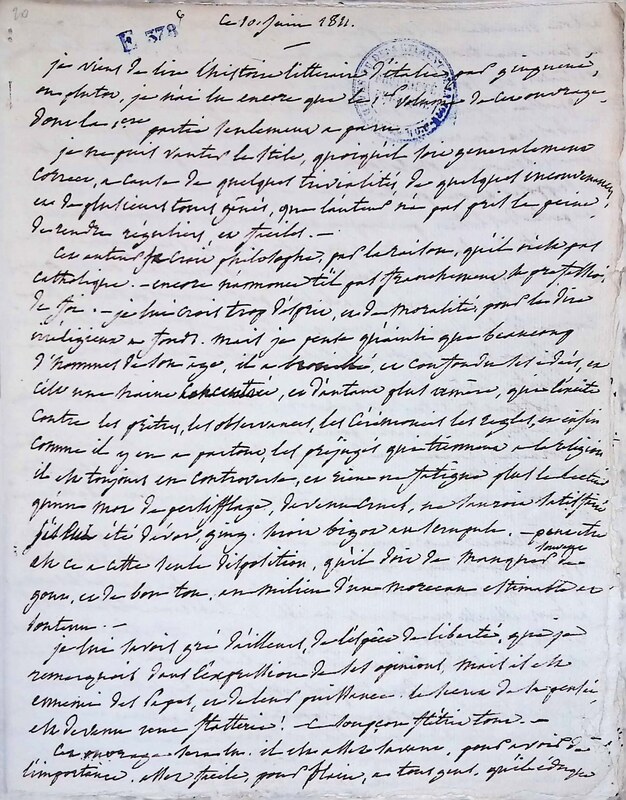 20
E 378
ce 10. juin 1811.
je viens de lire l'histoire litteraire d'italie par ginguené,
ou plutot, je n'ai lu encore que le 1er volume de cet ouvrage
dont la 1ere partie seulement a paru.
je ne puis vanter le stile, quoiqu'il soit generalement
correct, a cause de quelques trivialités, de quelques
et de plusieurs tours gênés, que l'auteur n'a pas pris la peine
de rendre réguliers, et faciles. —
cet auteur se croit philosophe, par la raison, qu'il n'est pas
catholique. — encore n'annonce t'il pas franchement, sa profession
de foi. — je lui crois trop d'esprit, et de moralité, pour le dire
irréligieux a fond. mais je pense qu'ainsi que beaucoup
d'hommes de son âge, il a et confondu les idées, et
c'est une haine concentrée, et d'autant plus amère, que l'excite
contre les prêtres, les observances, les cérémonies les regles, et enfin
comme il y en a partout, les préjugés qui tiennent a la religion
il est toujours en controverse, et rien ne fatigue plus le lecteur
qu'un mot de persifflage, devenu cruel, ne sauroit satisfaire
été d'avoir, ginguené bigot au temple. — peut etre
est ce a cette seule disposition, qu'il doit de manquer souvent de
gout, et de bon ton, au milieu d'un morceau estimable et
soutenu. —
je lui savois gré d'ailleurs, de l'espèce de liberté, que je
remarquois dans l'expression de ses opinions, mais il est
ennemi des Papes, et de leur puissance. le de la pensée,
est devenu une flatterie! — ce soupçon flétrit tout. —
cet ouvrage sera lu. il est assez savant, pour avoir de
l'importance, assez facile, pour plaire, a tous gens, qu'il